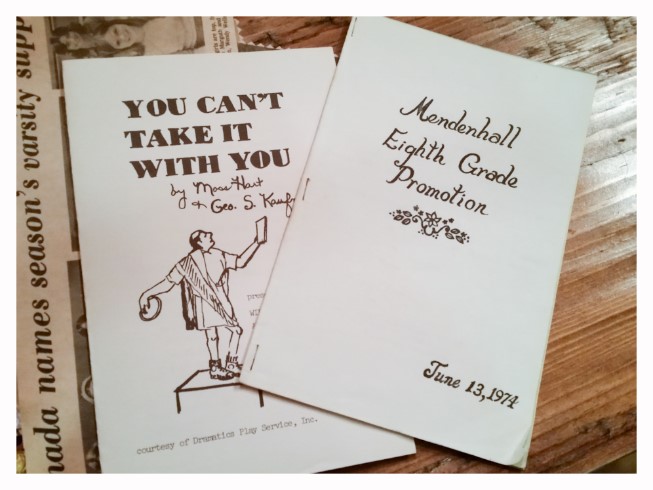 nada names season's varsity supp
YOU CAN'T
TAKE IT
WITH YOU
by Moss Hart
& Geo. S. Kauf
pres
courtesy of Dramatics Play Service, Inc.
Mendenhall
Eighth Grade
Promotion
June 13, 1974